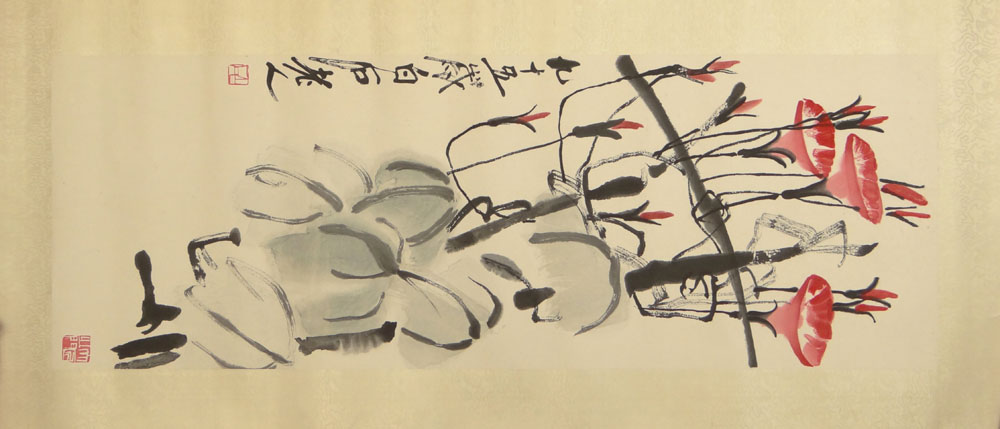 九十五歲白石老人